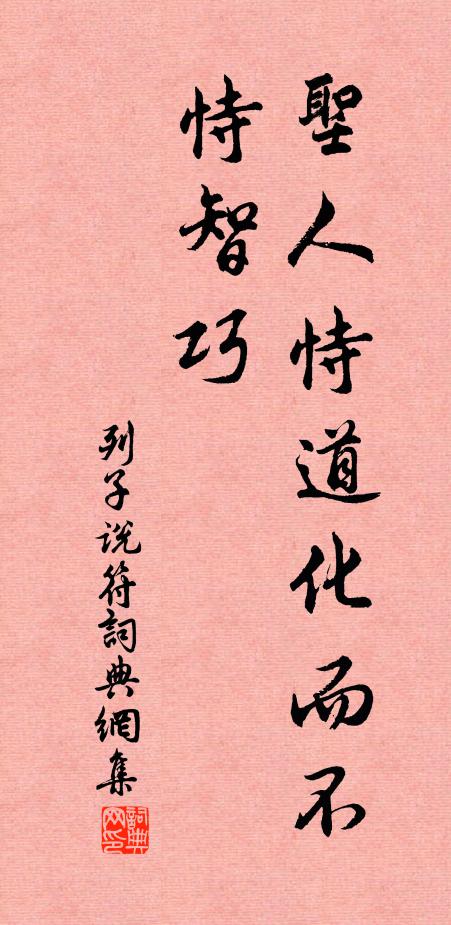 聖人恃道化而不
恃智巧
列子説符詞典網集
詞典
网印